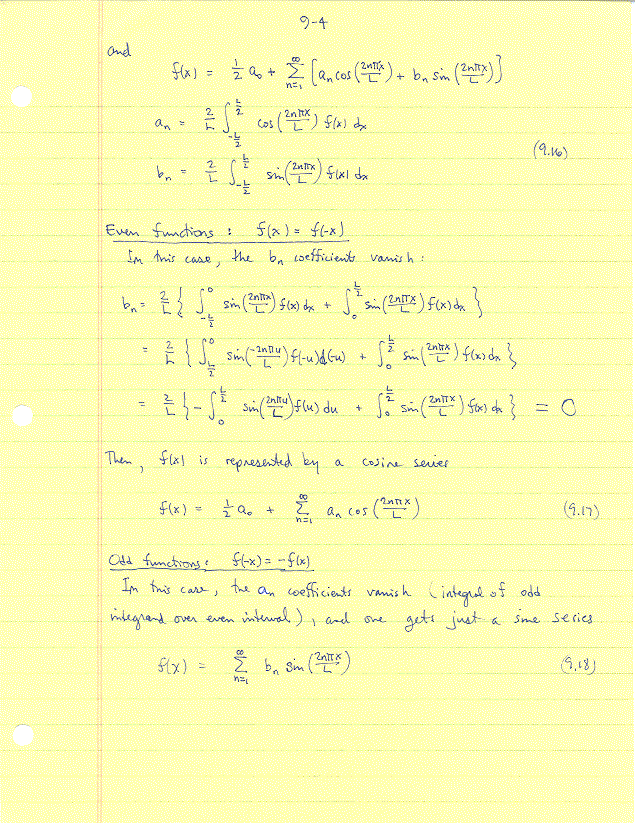 9-4
and
f(x) = 1/2 a₀ + ∑_{n=1}^{∞} [aₙ cos(2nπx/L) + bₙ sin(2nπx/L)]
aₙ = 2/L ∫_{-L/2}^{L/2} cos(2nπx/L) f(x) dx
(9.16)
bₙ = 2/L ∫_{-L/2}^{L/2} sin(2nπx/L) f(x) dx
Even functions : f(x) = f(-x)
In this case, the bₙ coefficients vanish :
bₙ = 2/L { ∫_{-L/2}^{0} sin(2nπx/L) f(x) dx + ∫_{0}^{L/2} sin(2nπx/L) f(x) dx }
= 2/L { ∫_{L/2}^{0} sin(-2nπu/L) f(-u) d(-u) + ∫_{0}^{L/2} sin(2nπx/L) f(x) dx }
= 2/L { - ∫_{0}^{L/2} sin(2nπu/L) f(u) du + ∫_{0}^{L/2} sin(2nπx/L) f(x) dx } = 0
Then, f(x) is represented by a cosine series
f(x) = 1/2 a₀ + ∑_{n=1}^{∞} aₙ cos(2nπx/L) (9.17)
Odd functions : f(-x) = -f(x)
In this case, the aₙ coefficients vanish (integral of odd
integrand over even interval), and one gets just a sine series
f(x) = ∑_{n=1}^{∞} bₙ sin(2nπx/L) (9.18)